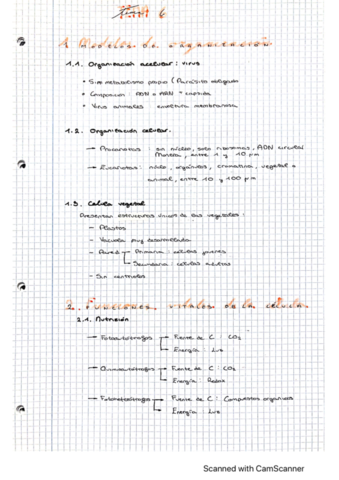 Tema 6
1. Modelos de organización
1.1. Organización acelular: virus
• Sin metabolismo propio (Parásito obligado
• Composición: ADN o ARN + cápsida
• Virus animales envoltura membranosa
1.2. Organización celular.
→ Procariotas: sin núcleo, solo ribosomas, ADN circular
Mureína, entre 1 y 10 µm
→ Eucariotas: núcleo, orgánulos, cromatina, vegetal o
animal, entre 10 y 100 µm
1.3. Célula vegetal
Presentan estructuras únicas de las vegetales:
- Plastos
- Vacuola muy desarrollada
- Pared → Primaria: células jóvenes
→ Secundaria: células adultas
- Sin centriolos
2. Funciones vitales de la célula.
2.1. Nutrición
→ Fotoautótrofos → Fuente de C: CO₂
→ Energía: Luz
→ Quimioautótrofos → Fuente de C: CO₂
→ Energía: Redox
→ Fotoheterótrofos → Fuente de C: Compuestos orgánicos
→ Energía: Luz
Scanned with CamScanner